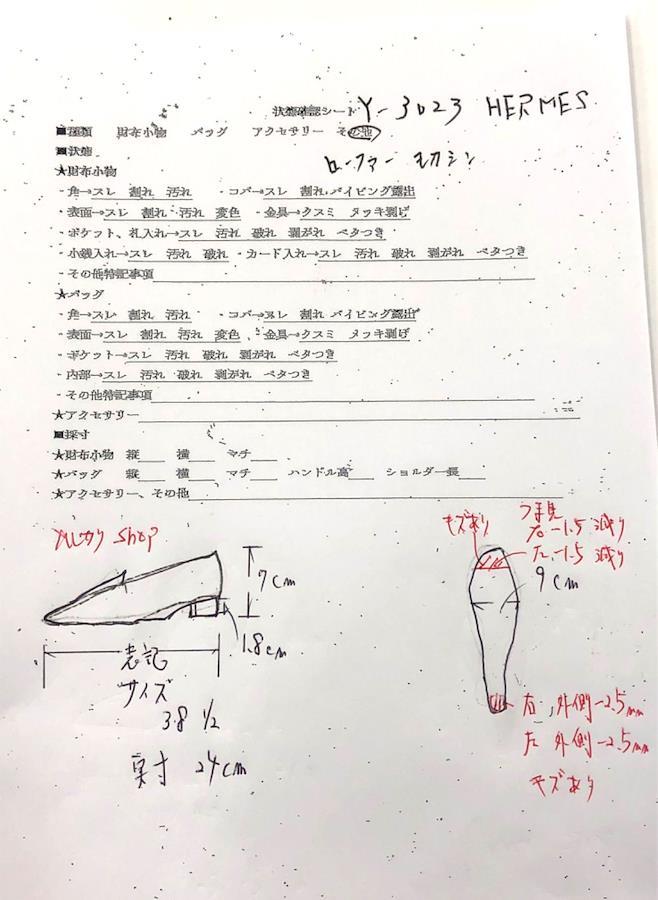 状態確認シート Y-3023 HERMES
■種類 財布小物 バッグ アクセサリー その他
■状態 ローファー モカシン
★財布小物
・角→スレ 割れ 汚れ ・コバ→スレ 割れ パイピング露出
・表面→スレ 割れ 汚れ 変色 ・金具→クスミ メッキ剥げ
・ポケット、札入れ→スレ 汚れ 破れ 剥がれ ベタつき
・小銭入れ→スレ 汚れ 破れ ・カード入れ→スレ 汚れ 破れ 剥がれ ベタつき
・その他特記事項
★バッグ
・角→スレ 割れ 汚れ ・コバ→スレ 割れ パイピング露出
・表面→スレ 割れ 汚れ 変色 ・金具→クスミ メッキ剥げ
・ポケット→スレ 汚れ 破れ 剥がれ ベタつき
・内部→スレ 汚れ 破れ 剥がれ ベタつき
・その他特記事項
★アクセサリー
■採寸
★財布小物 縦 横 マチ
★バッグ 縦 横 マチ ハンドル高 ショルダー長
★アクセサリー、その他
メルカリ Shop
7cm
1.8cm
表記
サイズ
38 1/2
実寸 24cm
キズあり
つま先
右 -1.5 減り
左 -1.5 減り
9cm
右 外側 -2.5mm
左 外側 -2.5mm
キズあり